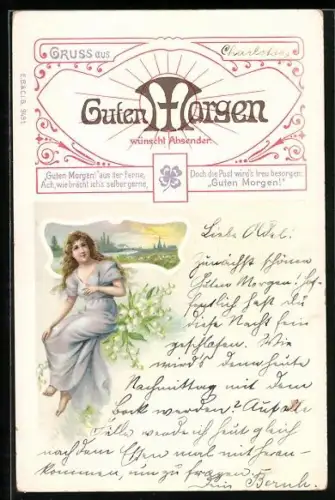 GRUSS aus
Charlottenb.
Guten Morgen
wünscht Absender.
"Guten Morgen!" aus der Ferne,
Ach, wie brächt ich's selber gerne,
Doch die Post wird's treu besorgen:
"Guten Morgen!"
Liebe Adel!
Zunächst schönen
Guten Morgen! Hof-
fentlich hast du
diese Nacht fein
geschlafen. Wie
wird's denn heute
Nachmittag mit dem
werden? Auf alle
Fälle werde ich heut gleich
nach dem Essen mal mit heran-
kommen, um zu fragen.
Dein Bernh.